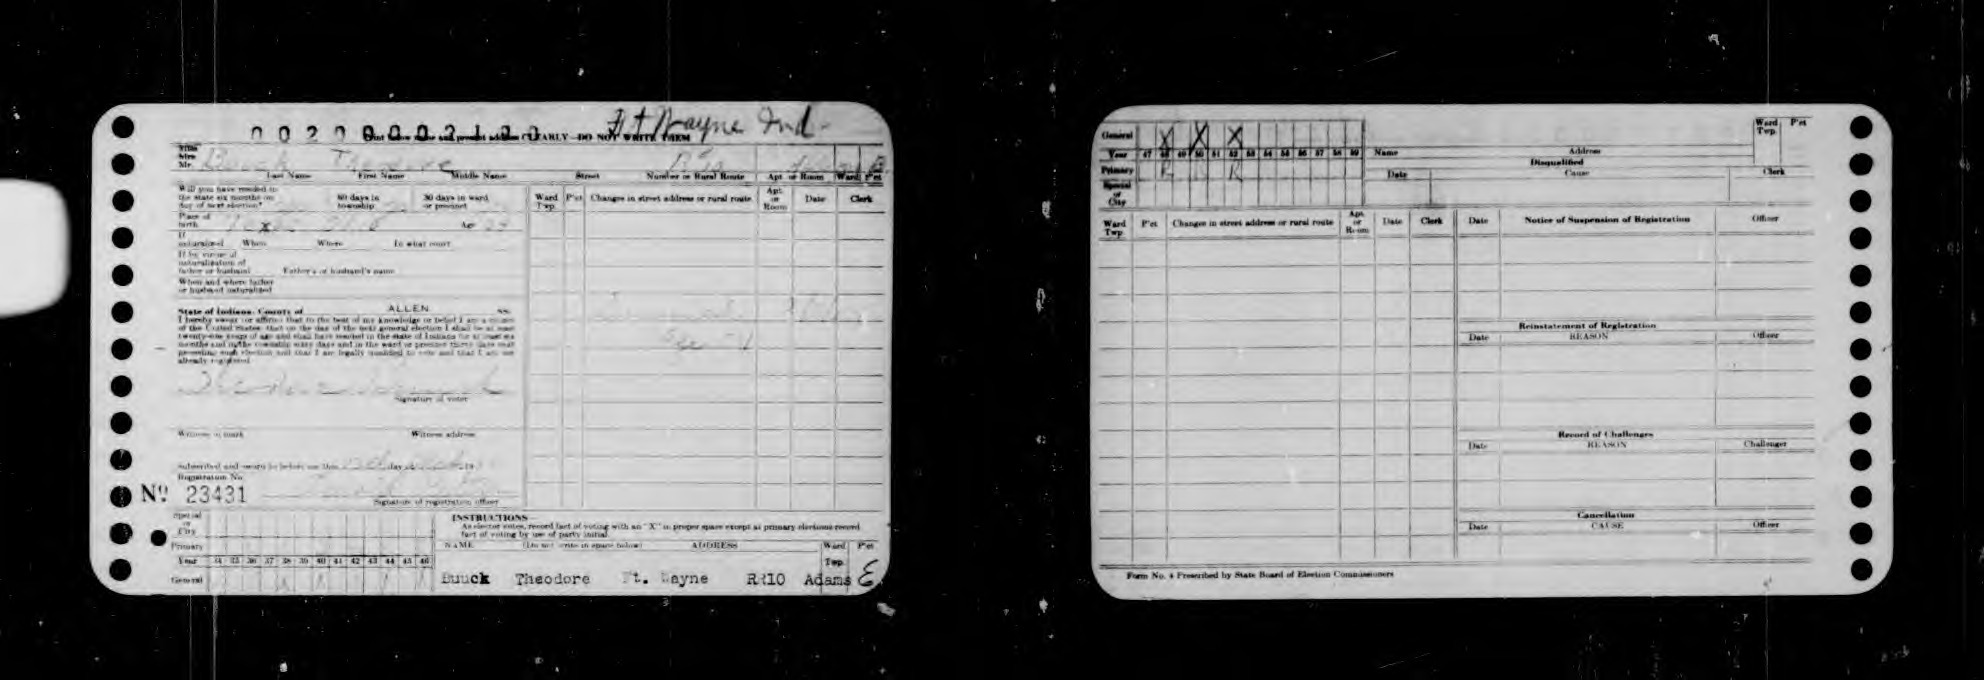 Ft Wayne Ind-
Print below name and present address CLEARLY—DO NOT WRITE THEM
Miss
Mrs
Mr. Buuck Theodore
Last Name First Name Middle Name Street Number or Rural Route Apt or Room Ward P'ct
Will you have resided in
the state six months on
day of next election?
60 days in
township
30 days in ward
or precinct
Ward
Twp.
P'ct
Changes in street address or rural route
Apt.
or
Room
Date
Clerk
Place of
birth
Age
If
naturalized When Where In what court
If by virtue of
naturalization of
father or husband Father's or husband's name
When and where father
or husband naturalized
State of Indiana, County of ALLEN SS:
I hereby swear or affirm that to the best of my knowledge or belief I am a citizen
of the United States; that on the day of the next general election I shall be at least
twenty-one years of age and shall have resided in the state of Indiana for at least six
months and in the township sixty days and in the ward or precinct thirty days next
preceding such election and that I am legally qualified to vote and that I am not
already registered.
Signature of voter
Witness to mark Witness address
Subscribed and sworn to before me this day of 19
Registration No.
No 23431
Signature of registration officer
Special
or
City
Primary
Year 34 35 36 37 38 39 40 41 42 43 44 45 46
General
INSTRUCTIONS—
As elector votes, record fact of voting with an "X" in proper space except at primary elections record
fact of voting by use of party initial.
NAME (Do not write in space below) ADDRESS Ward Twp. P'ct
Buuck Theodore Ft. Wayne RR10 Adams E
General X X X
Year 47 48 49 50 51 52 53 54 55 56 57 58 59
Primary R R R
Special
or
City
Name Address
Ward
Twp.
P'ct
Disqualified
Date Cause Clerk
Ward
Twp.
P'ct
Changes in street address or rural route
Apt.
or
Room
Date
Clerk
Date Notice of Suspension of Registration Officer
Reinstatement of Registration
Date REASON Officer
Record of Challenges
Date REASON Challenger
Cancellation
Date CAUSE Officer
Form No. 4 Prescribed by State Board of Election Commissioners